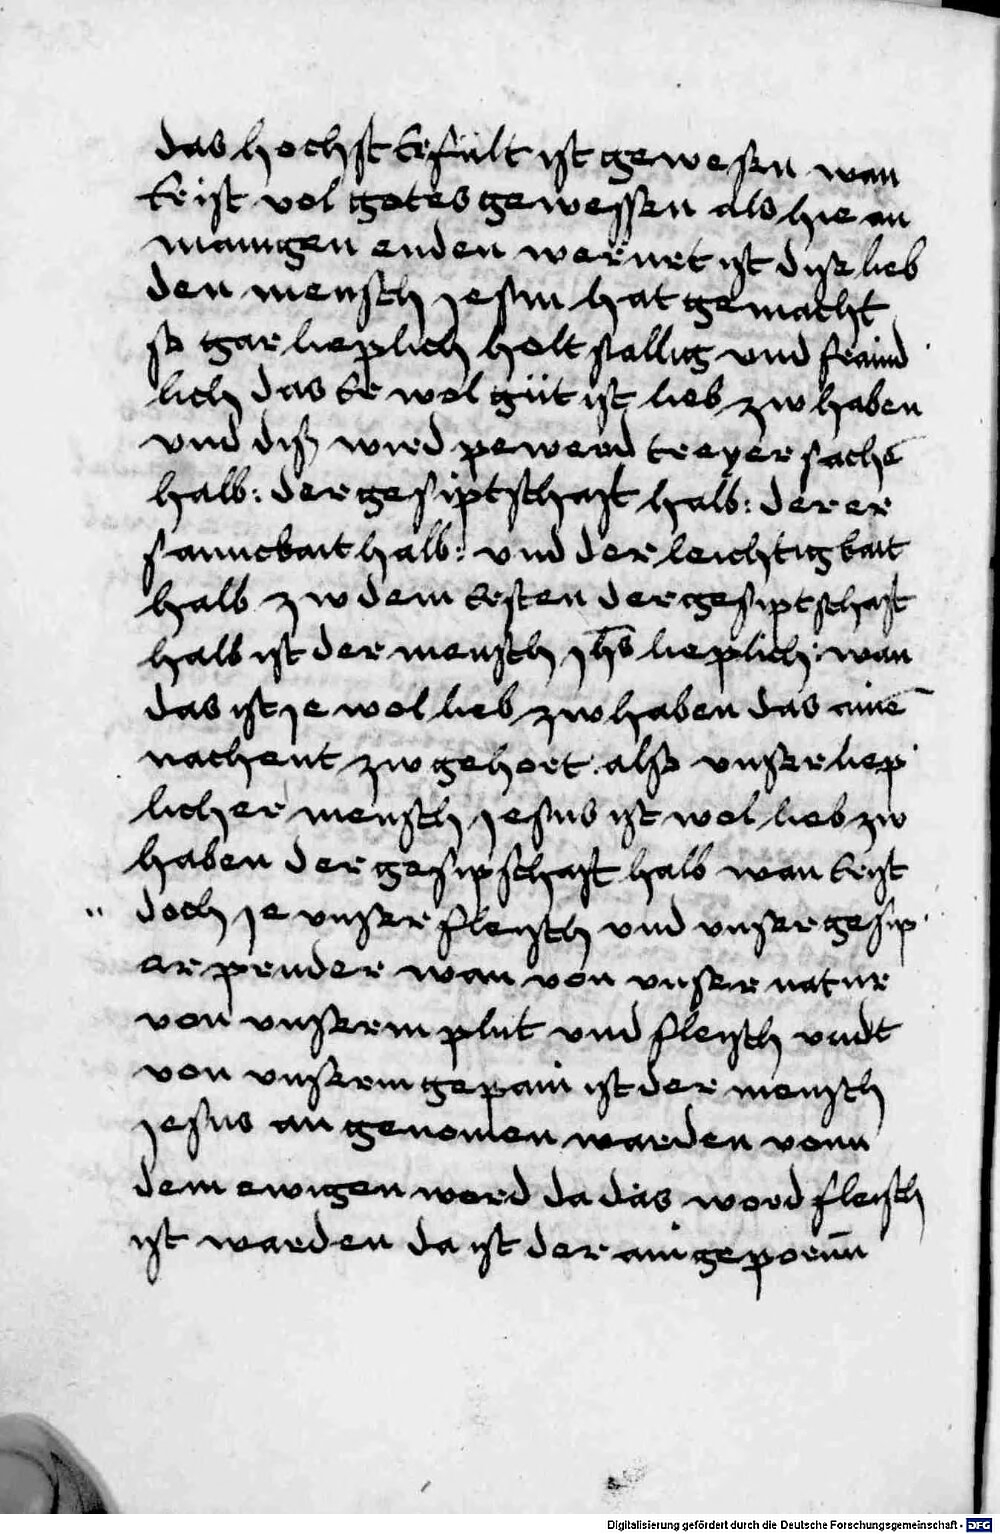 das hochst erfült ist gewesen wan
er ist vol gotes gewessen als hie an
manigen enden werürt ist dise lieb
den mensch jesm hat gemacht
so gar lieplich holtsallig und fraind
lich das er wol güt ist lieb zw haben
und diß wird pewerd treyer sachē
halb: der gesiptschaft halb: der er
samckait halb: und der leichtigkait
halb zw dem ersten der gesiptschaft
halb ist der mensch jhs lieplich: wan
das ist je wol lieb zw haben das ainē
nachent zw gehort also unser liep
licher mensch jesus ist wol lieb zw
haben der gesipschaft halb wan er ist
doch je unser fleisch und unser gesip
er pruder wan von unser natur
von unserm plut und fleisch undt
von unserm gepain ist der mensch
jesus an genomen warden vonn
dem ewigen word da das word fleisch
ist warden da ist der ain gepornn
Digitalisierung gefördert durch die Deutsche Forschungsgemeinschaft - DFG